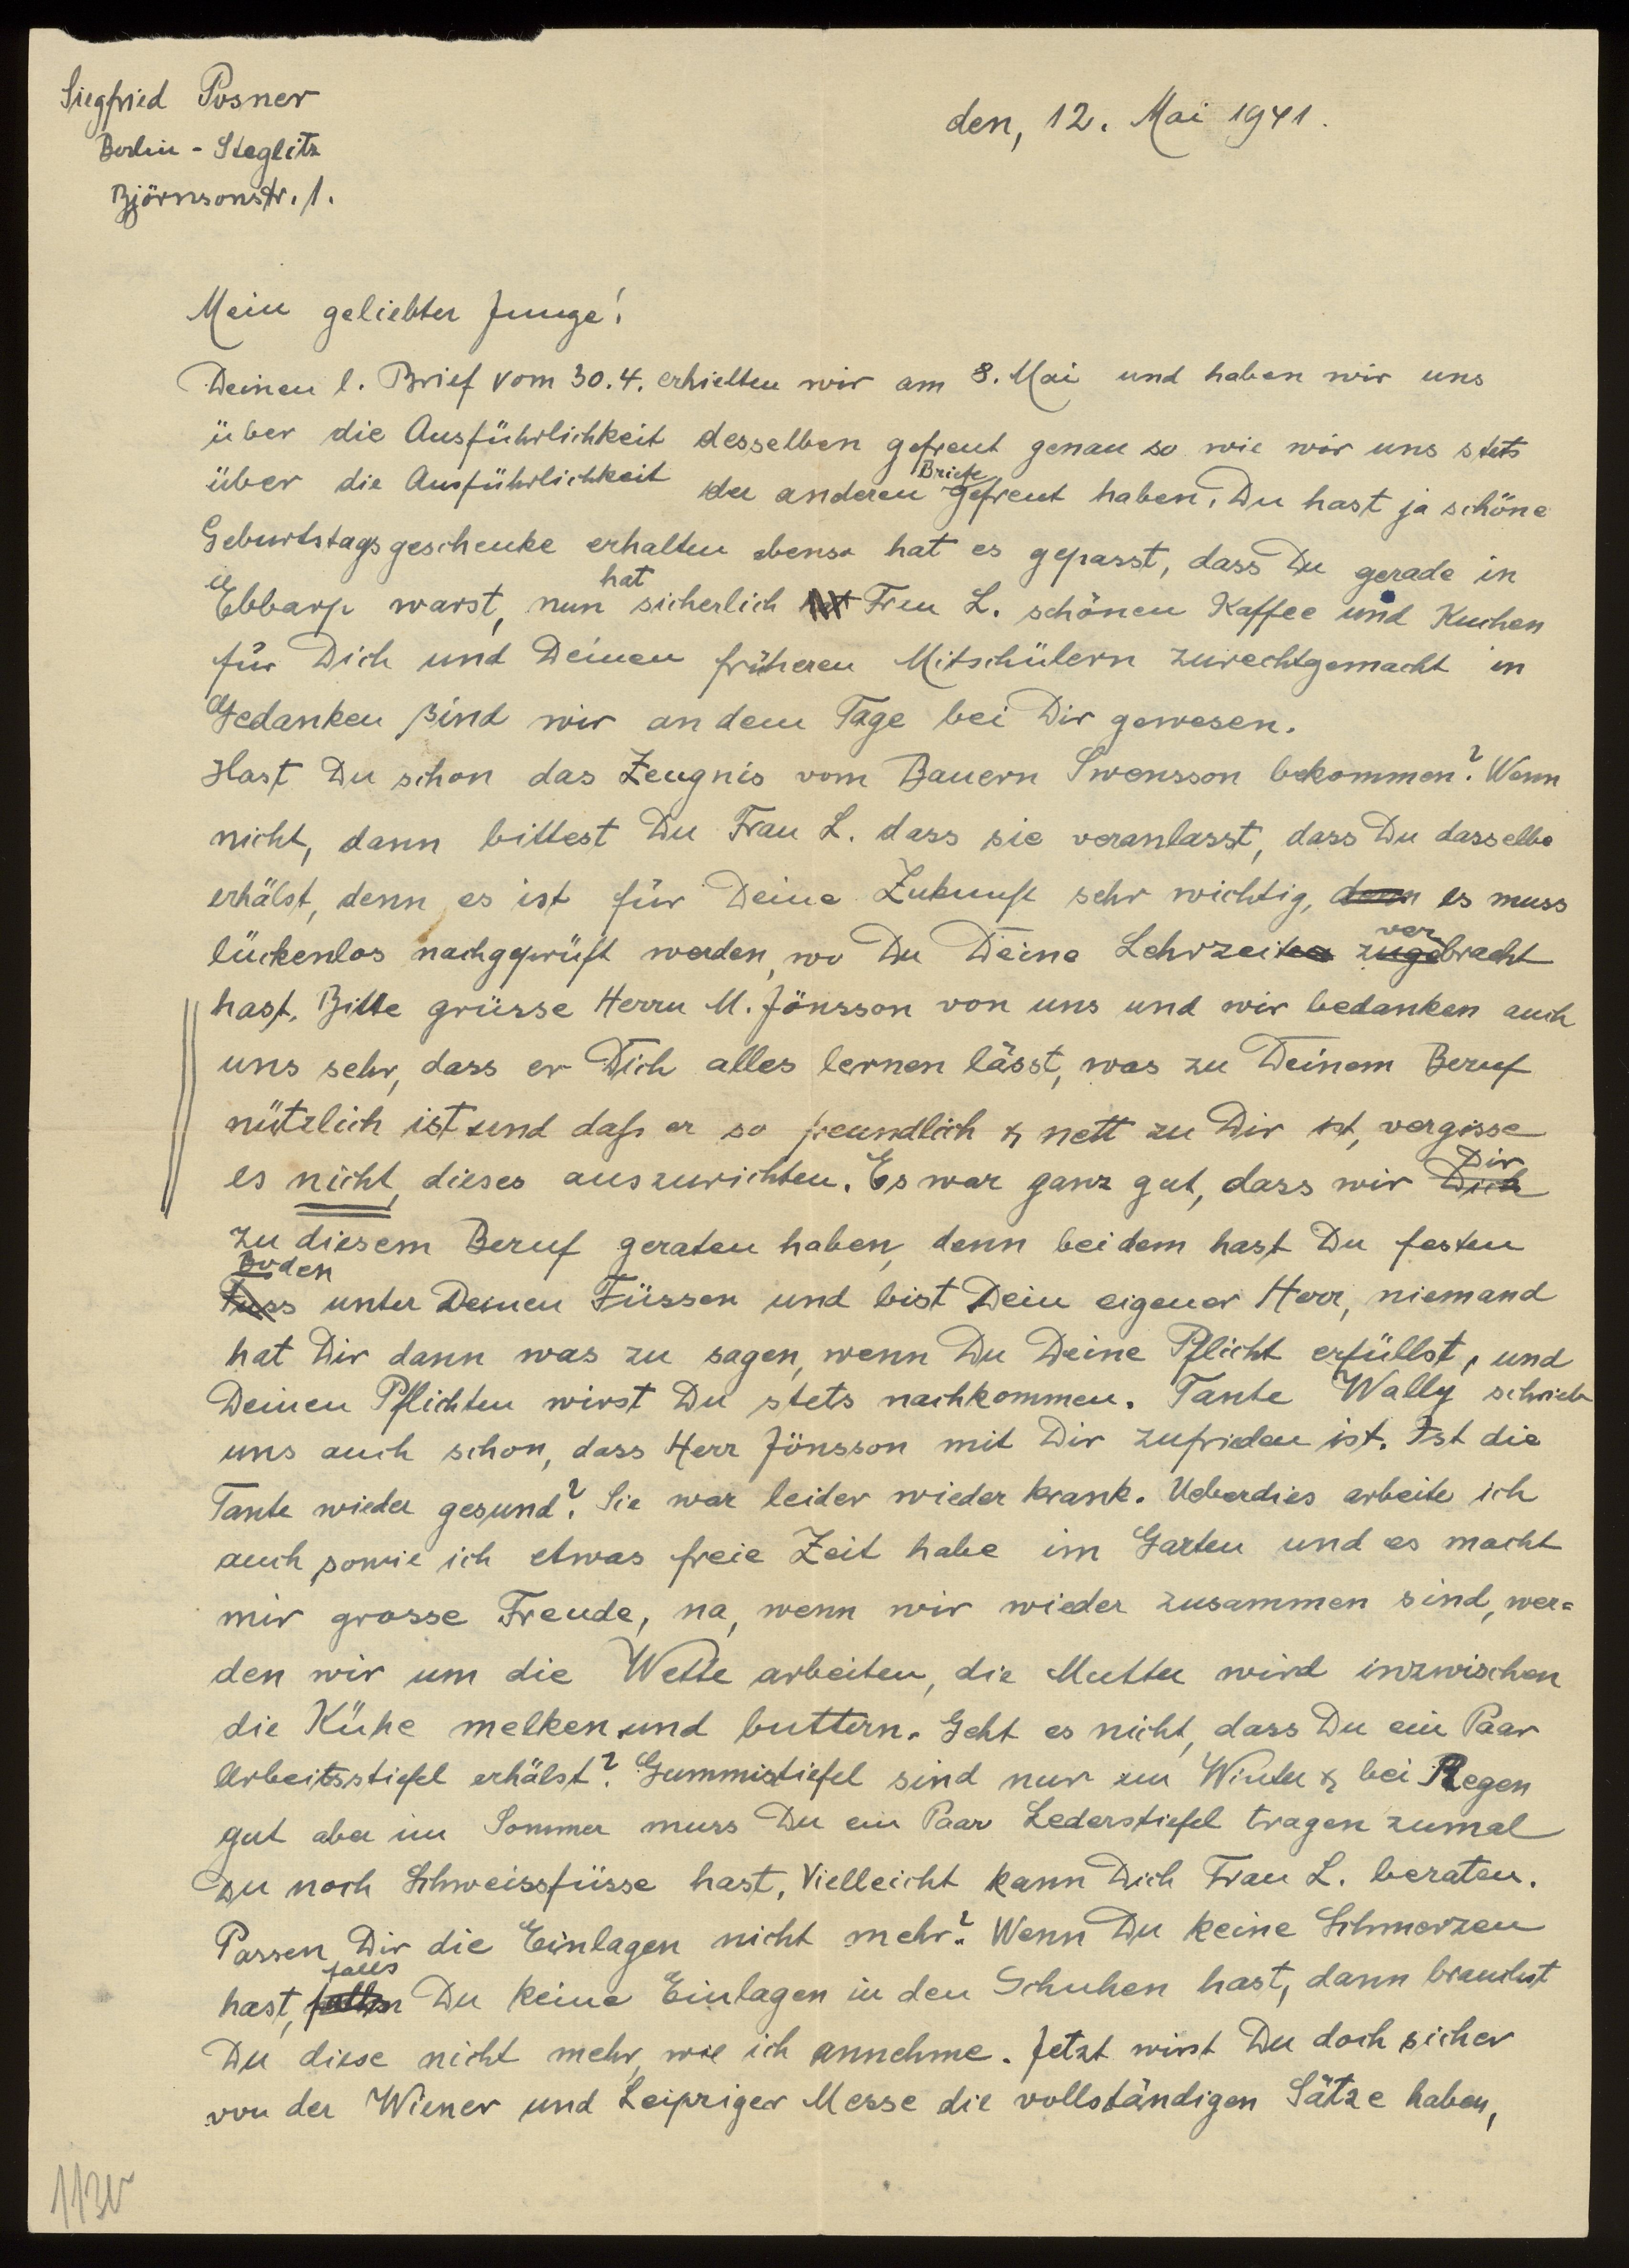 Siegfried Posner
Berlin - Steglitz
Björnsonstr. 1.
den, 12. Mai 1941.
Mein geliebter Junge!
Deinen l. Brief vom 30.4. erhielten wir am 8. Mai und haben wir uns
über die Ausführlichkeit desselben gefreut genau so wie wir uns stets
über die Ausführlichkeit der anderen Briefe gefreut haben. Du hast ja schöne
Geburtstagsgeschenke erhalten ebenso hat es gepasst, dass Du gerade in
Ebbarp warst, nun hat sicherlich Frau L. schönen Kaffee und Kuchen
für Dich und Deinen früheren Mitschülern zurechtgemacht in
Gedanken sind wir an dem Tage bei Dir gewesen.
Hast Du schon das Zeugnis vom Bauern Swensson bekommen? Wenn
nicht, dann bittest Du Frau L. dass sie veranlasst, dass Du dasselbe
erhälst, denn es ist für Deine Zukunft sehr wichtig, denn es muss
lückenlos nachgeprüft werden, wo Du Deine Lehrzeit verbracht
hast. Bitte grüsse Herrn M. Jönsson von uns und wir bedanken auch
uns sehr, dass er Dich alles lernen lässt, was zu Deinem Beruf
nützlich ist und daß er so freundlich & nett zu Dir ist, vergisse
es nicht, dieses auszurichten. Es war ganz gut, dass wir Dir
zu diesem Beruf geraten haben, denn bei dem hast Du festen
Boden unter Deinen Füssen und bist Dein eigener Herr, niemand
hat Dir dann was zu sagen, wenn Du Deine Pflicht erfüllst, und
Deinen Pflichten wirst Du stets nachkommen. Tante Wally schrieb
uns auch schon, dass Herr Jönsson mit Dir zufrieden ist. Ist die
Tante wieder gesund? Sie war leider wieder krank. Ueberdies arbeite ich
auch sowie ich etwas freie Zeit habe im Garten und es macht
mir grosse Freude, na, wenn wir wieder zusammen sind, wer=
den wir um die Wette arbeiten, die Mutter wird inzwischen
die Kühe melken und buttern. Geht es nicht, dass Du ein Paar
Arbeitsstiefel erhälst? Gummistiefel sind nur im Winter & bei Regen
gut aber im Sommer muss Du ein Paar Lederstiefel tragen zumal
Du noch Schweissfüsse hast, Vielleicht kann Dich Frau L. beraten.
Passen Dir die Einlagen nicht mehr? Wenn Du keine Schmerzen
hast, falls Du keine Einlagen in den Schuhen hast, dann brauchst
Du diese nicht mehr, wie ich annehme. Jetzt wirst Du doch sicher
von der Wiener und Leipziger Messe die vollständigen Sätze haben,